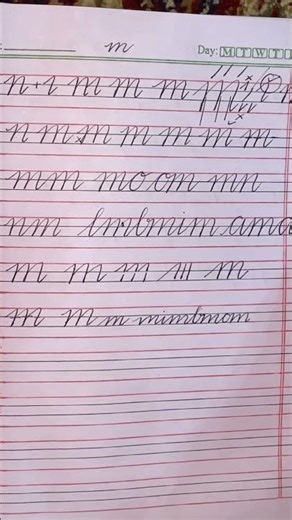 m Day: M T W T
n+1 m m m
n m m m m m m m
mm mocom mn
nm lmbmim ama
m m m //// m
m m m mimbmom